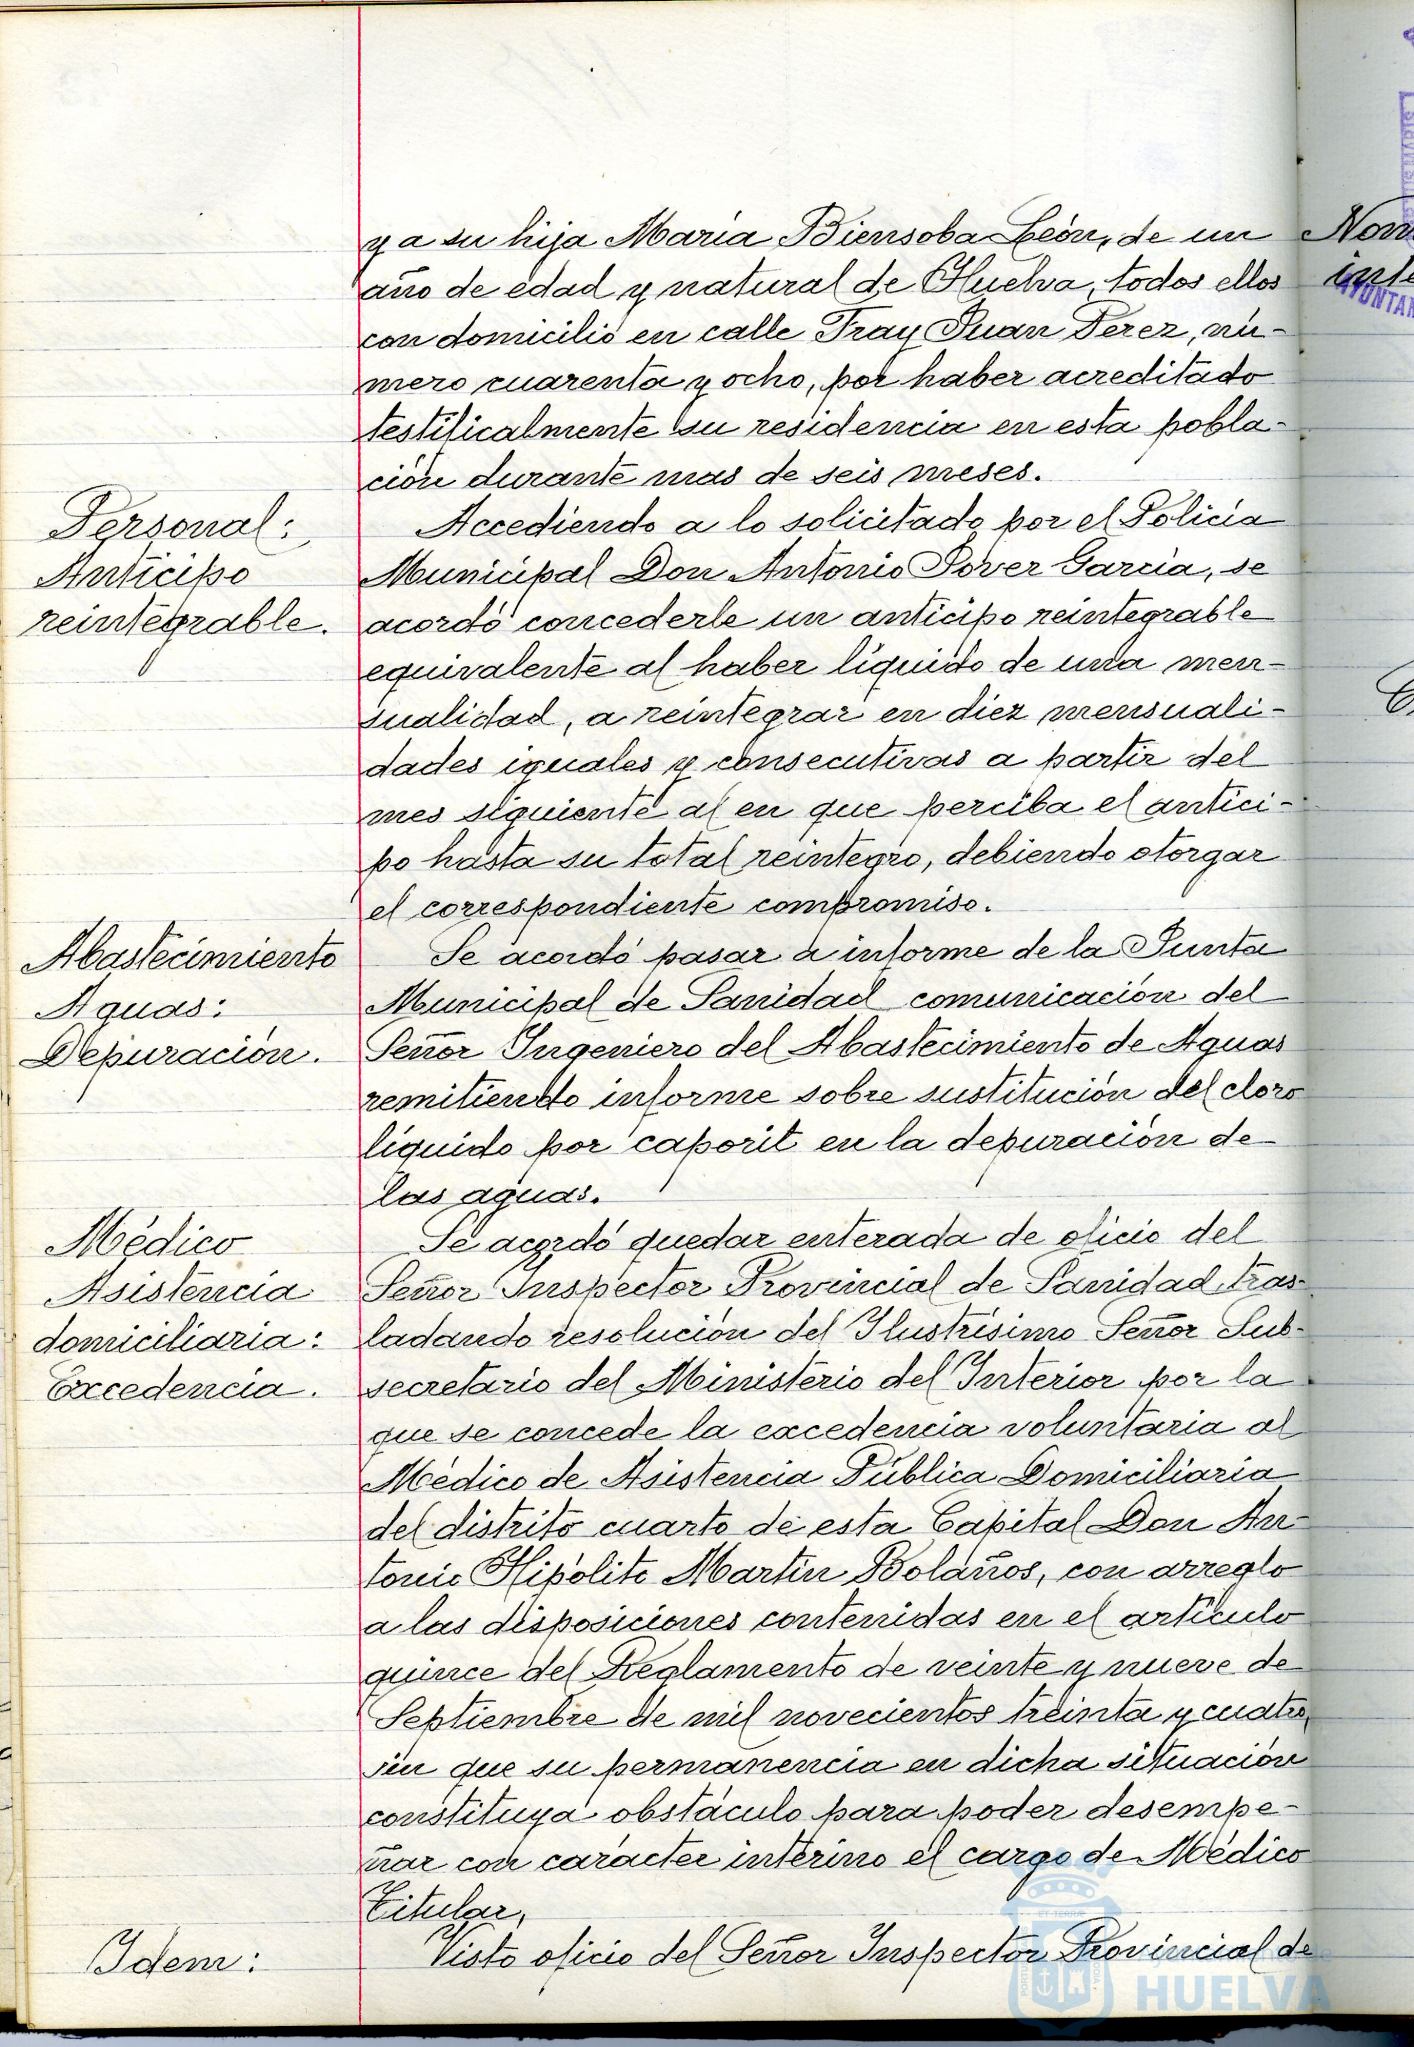 y a su hija María Biensoba León, de un
año de edad y natural de Huelva, todos ellos
con domicilio en calle Fray Juan Perez, nú-
mero cuarenta y ocho, por haber acreditado
testificalmente su residencia en esta pobla-
ción durante mas de seis meses.
Personal:
Anticipo
reintegrable.
Accediendo a lo solicitado por el Policía
Municipal Don Antonio Pover García, se
acordó concederle un anticipo reintegrable
equivalente al haber líquido de una men-
sualidad, a reintegrar en diez mensuali-
dades iguales y consecutivas a partir del
mes siguiente al en que perciba el antici-
po hasta su total reintegro, debiendo otorgar
el correspondiente compromiso.
Abastecimiento
Aguas:
Depuración.
Se acordó pasar a informe de la Junta
Municipal de Sanidad comunicación del
Señor Ingeniero del Abastecimiento de Aguas
remitiendo informe sobre sustitución del cloro
líquido por caporit en la depuración de
las aguas.
Médico
Asistencia
domiciliaria:
Excedencia.
Se acordó quedar enterada de oficio del
Señor Inspector Provincial de Sanidad tras-
ladando resolución del Ilustrísimo Señor Sub-
secretario del Ministerio del Interior por la
que se concede la excedencia voluntaria al
Médico de Asistencia Pública Domiciliaria
del distrito cuarto de esta Capital Don An-
tonio Hipólito Martín Bolaños, con arreglo
a las disposiciones contenidas en el artículo
quince del Reglamento de veinte y nueve de
Septiembre de mil novecientos treinta y cuatro,
sin que su permanencia en dicha situación
constituya obstáculo para poder desempe-
ñar con carácter interino el cargo de Médico
Titular.
Idem:
Visto oficio del Señor Inspector Provincial de
HUELVA